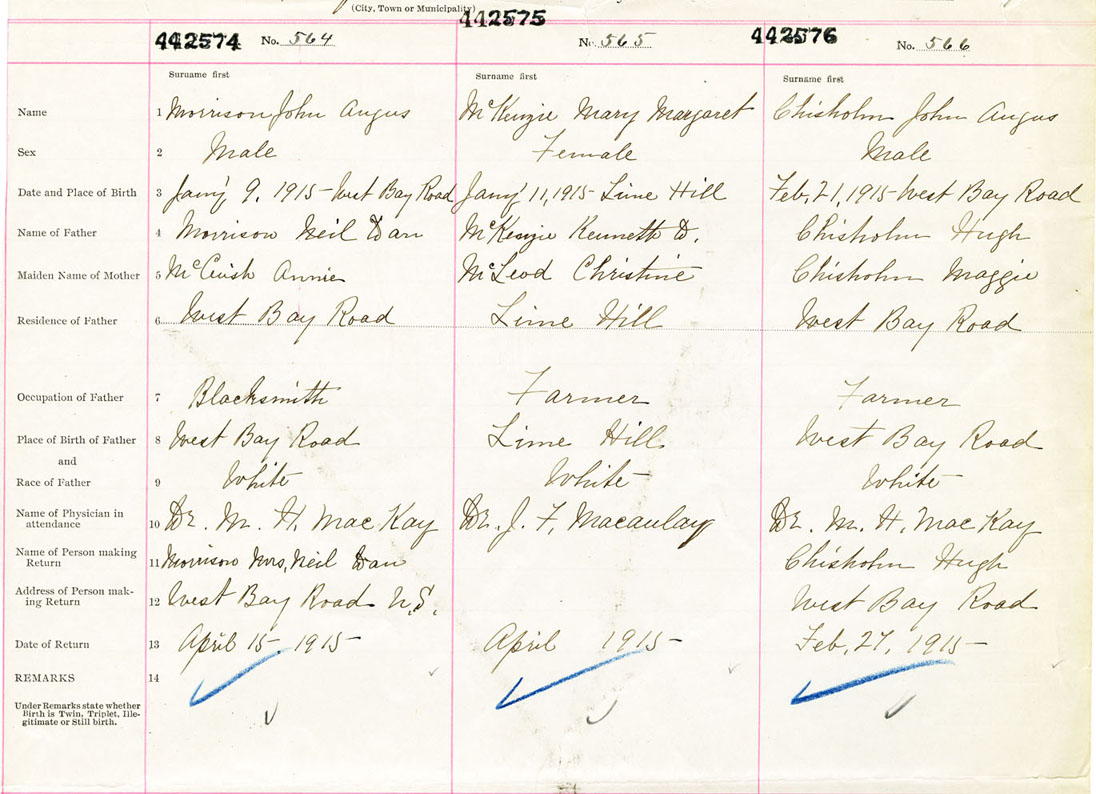 (City, Town or Municipality)
442574 No. 564 442575 No. 565 442576 No. 566
Surname first Surname first Surname first
Name 1 Morrison John Angus McKenzie Mary Margaret Chisholm John Angus
Sex 2 Male Female Male
Date and Place of Birth 3 Jan'y 9, 1915 - West Bay Road Jan'y 11, 1915 - Lime Hill Feb, 21, 1915 - West Bay Road
Name of Father 4 Morrison Neil Dan McKenzie Kenneth D. Chisholm Hugh
Maiden Name of Mother 5 McCuish Annie McLeod Christine Chisholm Maggie
Residence of Father 6 West Bay Road Lime Hill West Bay Road
Occupation of Father 7 Blacksmith Farmer Farmer
Place of Birth of Father 8 West Bay Road Lime Hill West Bay Road
and
Race of Father 9 White White White
Name of Physician in
attendance 10 Dr. M. H. MacKay Dr. J. F. Macaulay Dr. M. H. MacKay
Name of Person making
Return 11 Morrison Mrs, Neil Dan Chisholm Hugh
Address of Person mak-
ing Return 12 West Bay Road N.S. West Bay Road
Date of Return 13 April 15, 1915 - April 1915 - Feb, 27, 1915 -
REMARKS 14
Under Remarks state whether
Birth is Twin, Triplet, Ille-
gitimate or Still birth.